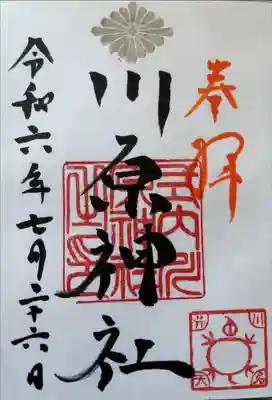 奉拝
川原神社
令和六年七月二十六日